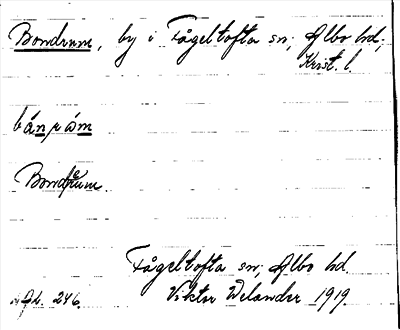 Bondrum, by i Fågeltofta sn, Albo hd,
Krist. l.
bánråm
Bondrum.
Fågeltofta sn, Albo hd.
Viktor Welander 1919
246.